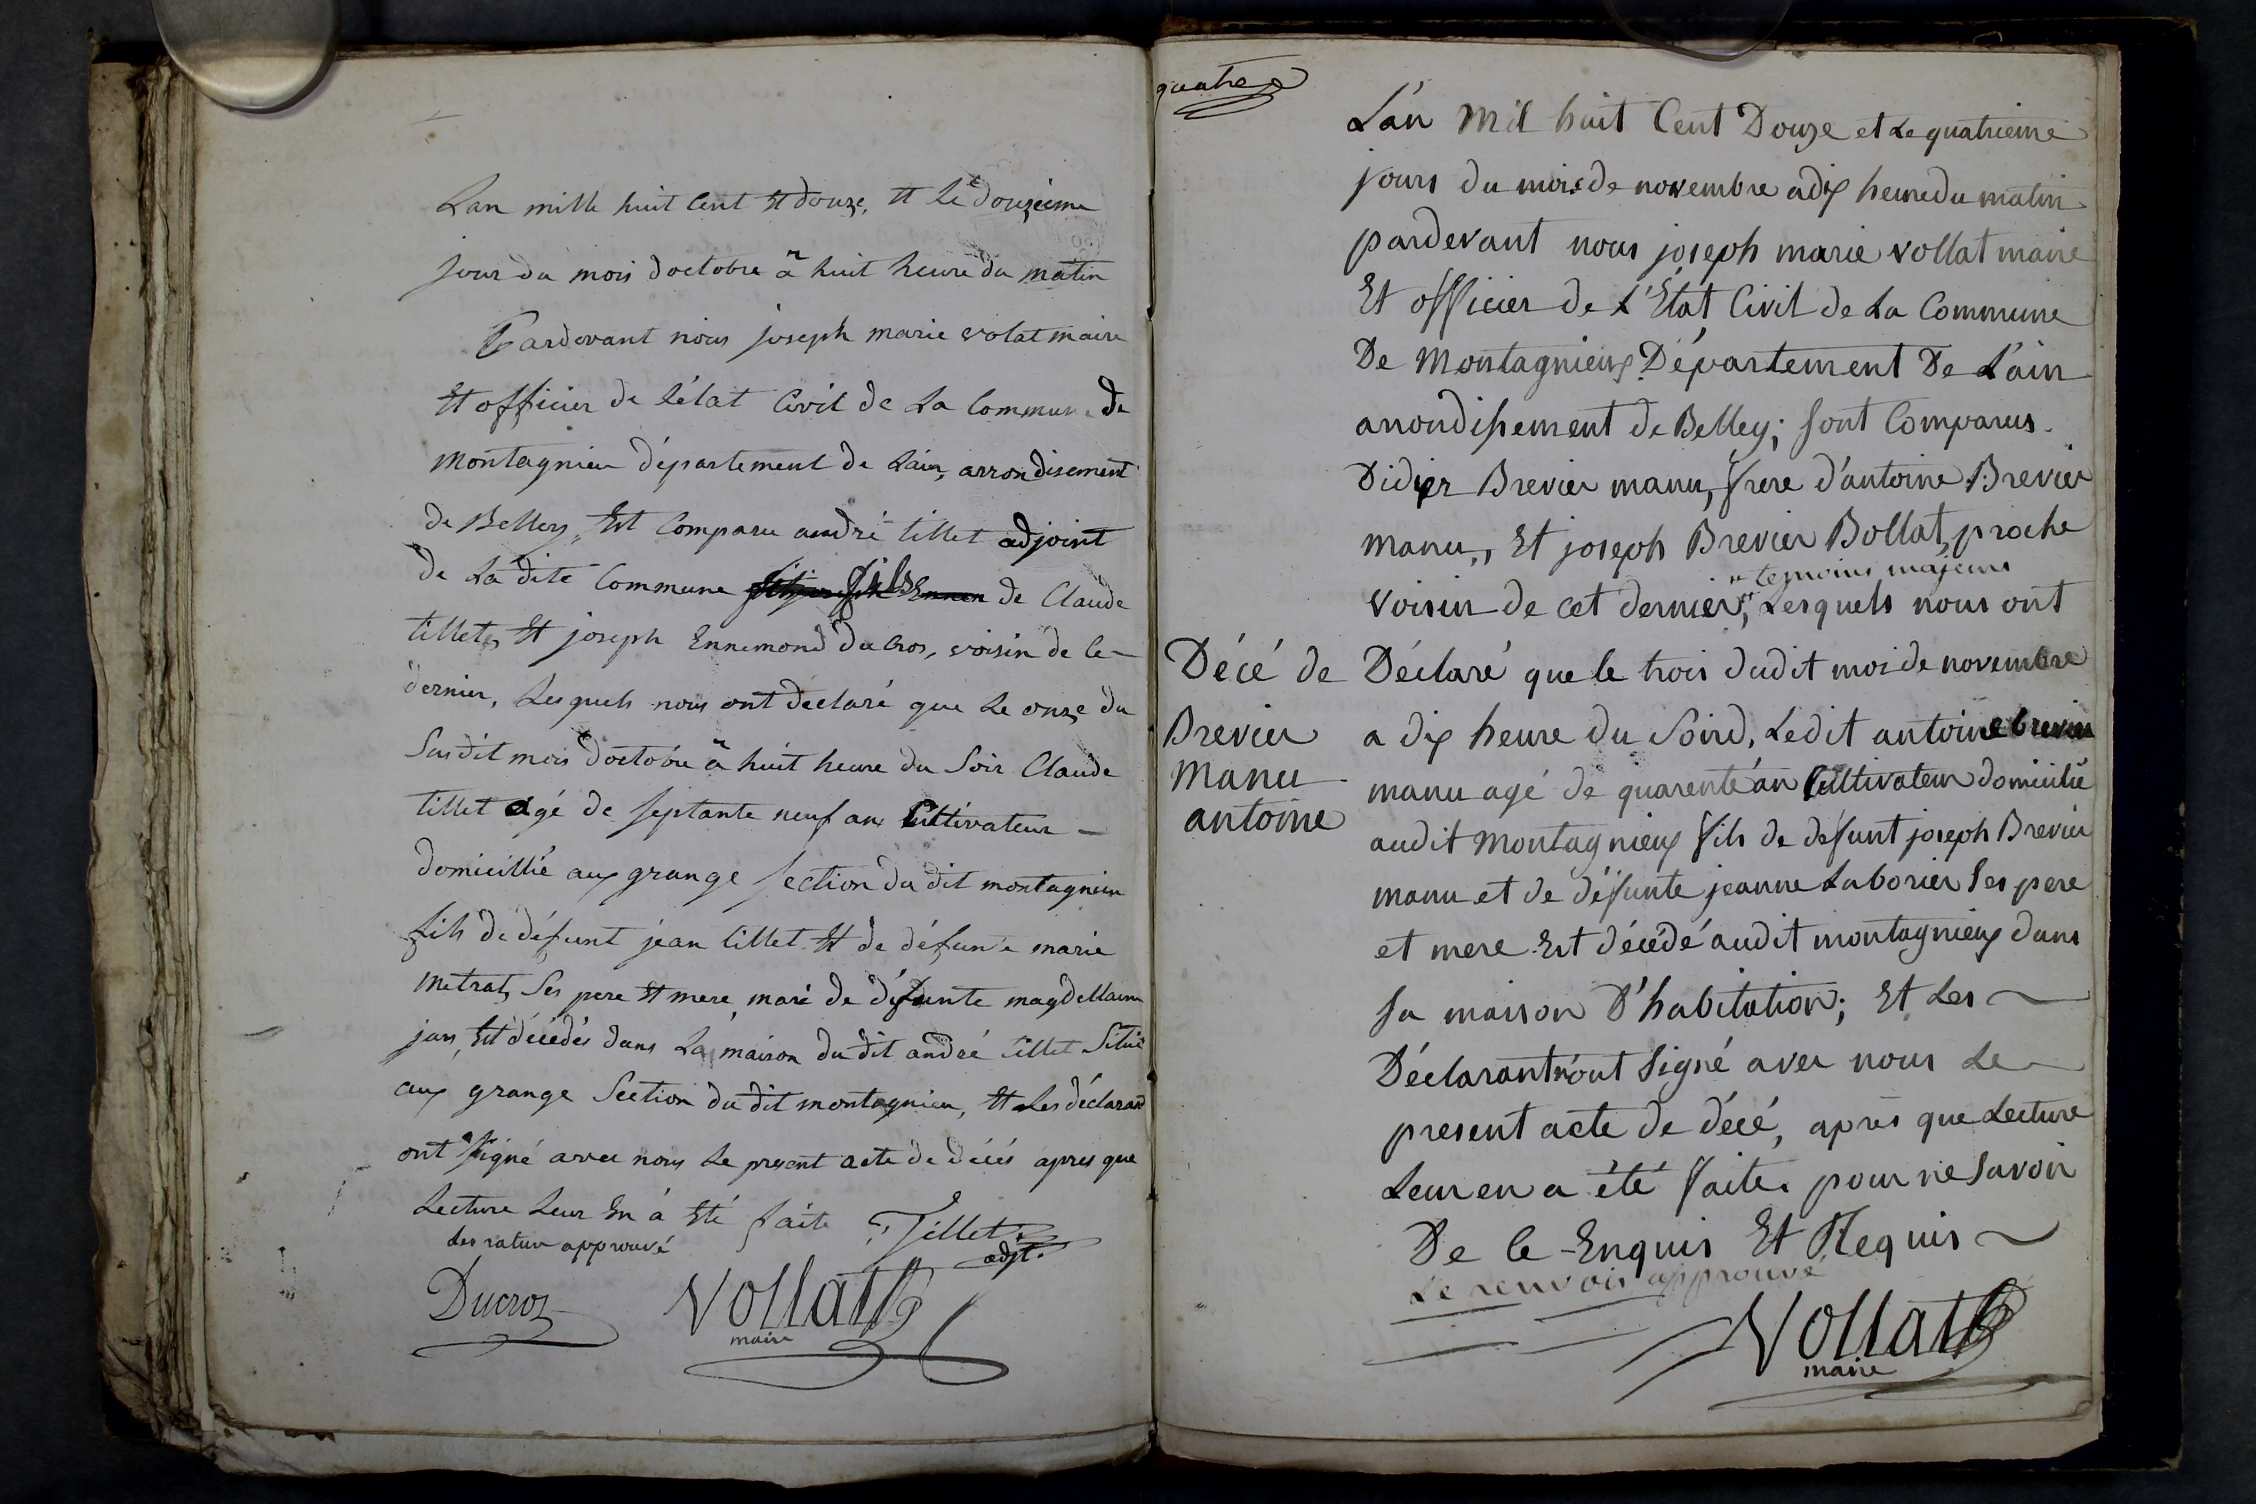 Lan mille huit Cent Et douze, Et le douzieme
jour du mois doctobre à huit heure du matin
Pardevant nous joseph marie volat maire
Et officier de l'état Civil de La Commune de
montagnieu département de Lain, arrondisement
de Belley, Est Comparu andré tillet adjoint
de La dite Commune fils de Claude
tillet, Et joseph Ennemond ducros, voisin de ce
dernier, Lesquels nous ont déclaré que le onze du
Susdit mois doctobre à huit heure du Soir Claude
tillet agé de septante neuf ans Cultivateur
domicillié aux grange section du dit montagnieu
fils de défunt jean tillet Et de défunte marie
metrat, Ses pere Et mere, marié de défunte magdellaine
jan, Est décédés dans La maison du dit andré tillet Situé
aux grange Section du dit montagnieu, Et Les déclarand
ont signé avec nous Le present acte de décés apres que
Lecture Leur En à Eté faite Tillet
adjt.
Les rature approuvé
Ducroz Vollat
maire
quatre
L'an Mil huit Cent Douze et Le quatrieme
jours du mois de novembre a dix heure du matin
pardevant nous joseph marie vollat maire
Et officier de L'Etat Civil de La Commune
De Montagnieux Département De L'ain
arrondissement de Belley; sont Comparus
Didier Brevier manu, frere d'antoine Brevier
manu, Et joseph Brevier Bollat, proche
temoins majeurs
voisin de cet dernier, Lesquels nous ont
Décé de
Brevier
Manu
antoine
Déclaré que le trois dudit moi de novembre
a dix heure du Soird, Ledit antoine brevier
manu agé de quarente an Cultivateur domicilié
audit Montagnieux fils de defunt joseph Brevier
manu et de défunte jeanne Laborier Ses pere
et mere Est décédé audit montagnieux dans
Sa maison D'habitation; Et Les
Déclarant n'ont Signé avec nous Le
present acte de décé, après que Lecture
Leur en a été faite. pour ne Savoir
De Ce Enquis Et Requis
Le renvois approuvé
Vollat
maire